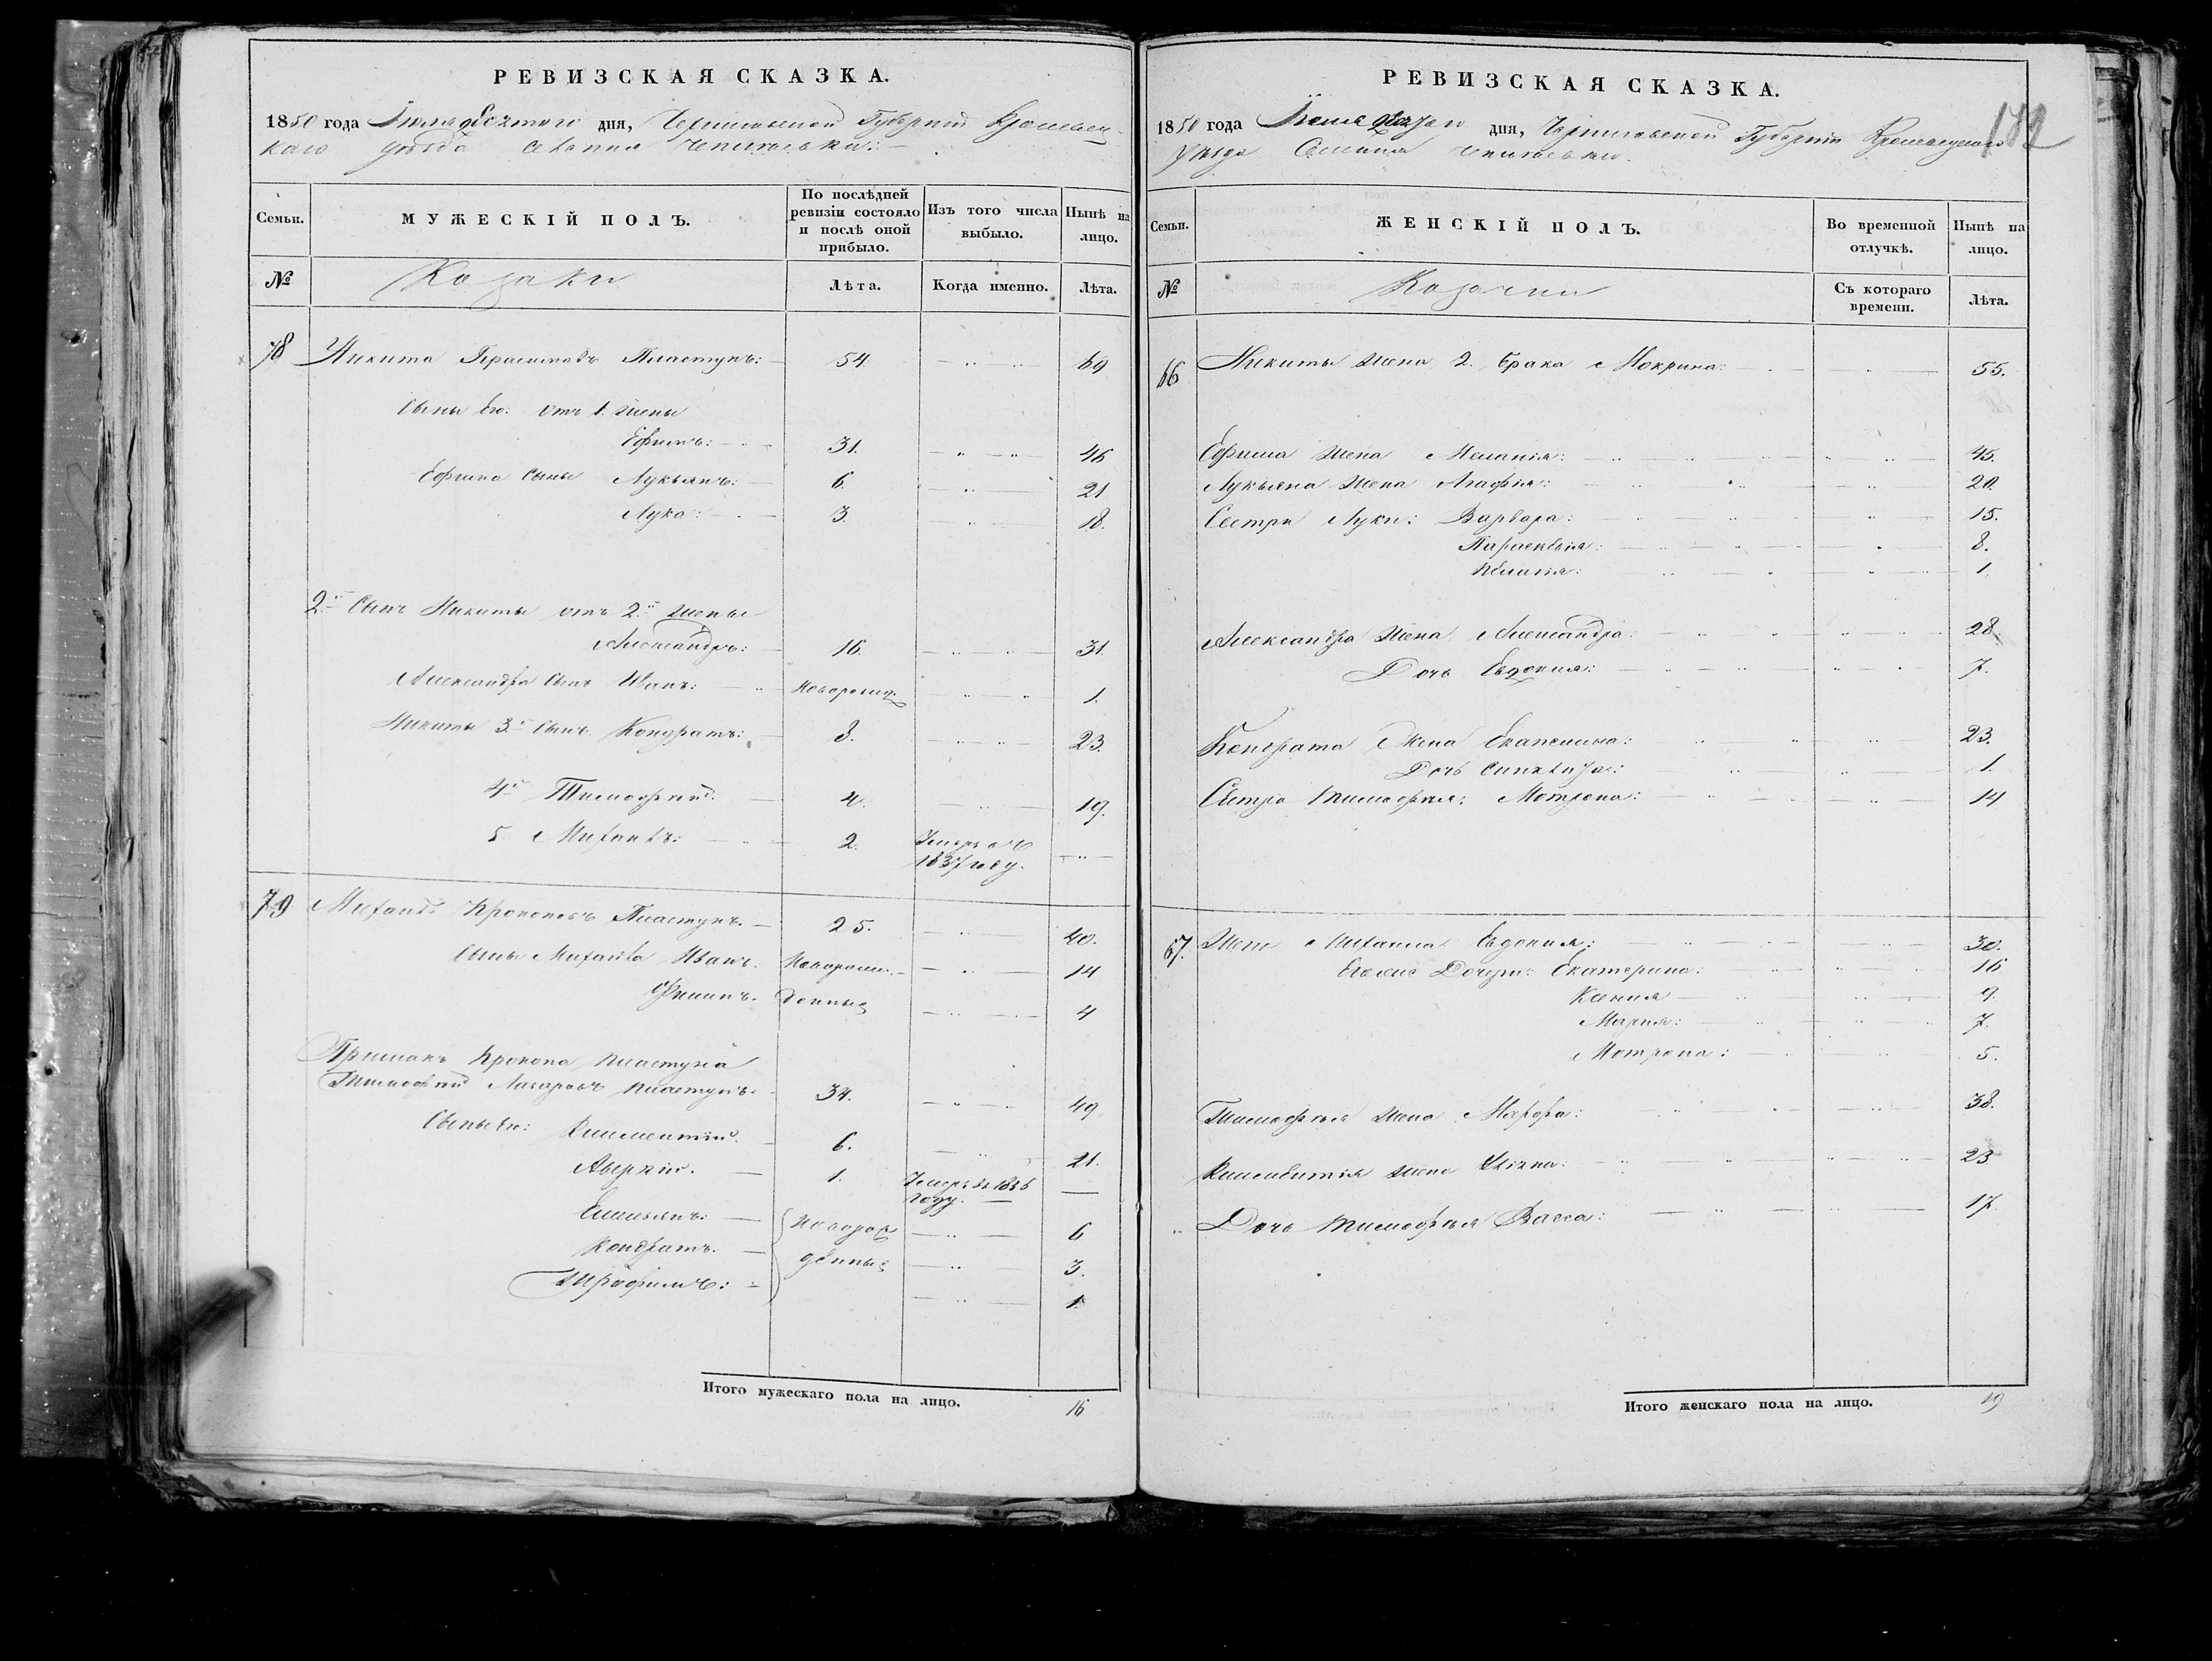 РЕВИЗСКАЯ СКАЗКА.
1850 года дня, Черниговской Губернiи
каго уѣзда селенiя
Семьи.
МУЖЕСКІЙ ПОЛЪ.
По послѣдней ревизіи состояло и послѣ оной прибыло.
Изъ того числа выбыло.
Нынѣ на лицо.
№
Козаки
Лѣта.
Когда именно.
Лѣта.
78 Никита Герасимовъ Пластунъ: 54. 69
Сыны Его: отъ 1. жены
Ефимъ: 31. 46
Ефима Сыны Лукьянъ: 6. 21
Лука: 3. 18.
2й Сынъ Никиты отъ 2й жены
Александръ: 16. 31.
Александра Сынъ Иванъ: Новорожд. 1.
Никиты 3й Сынъ Кондратъ: 8. 23.
4й Тимофей: 4. 19.
5. Михаилъ: 2. Умеръ въ
1837 году.
79 Михаилъ Прокоповъ Пластунъ. 25. 40.
Сыны Михаила Иванъ. Новорож. 14
Филипъ. денные 4
Примакъ Прокопа Пластуна
Тимофей Лазаровъ Пластунъ. 34. 49
Сыны Его: Климентiй. 6. 21.
Аверкiй. 1. Умеръ въ 1836
году.
Емельянъ: новорож 6
Кондратъ. денные 3.
Трофимъ: 1.
Итого мужескаго пола на лицо. 16
РЕВИЗСКАЯ СКАЗКА.
172
1850 года дня, Черниговской Губернiи
уѣзда Селенiя
Семьи.
ЖЕНСКІЙ ПОЛЪ.
Во временной отлучкѣ.
Нынѣ на лицо.
№
Козачки
Съ котораго времени.
Лѣта.
66 Никиты жена 2. брака Мокрина: 55.
Ефима жена Меланiя: 45.
Лукьяна жена Агафiя: 20.
Сестри Луки: Варвара: 15.
Параскевiя: 8.
1.
Александра жена Александра: 28.
Дочь Евдокия: 7.
Кондрата Жена Екатерина: 23.
Дочь 1.
Сестра Тимофея: Мотрона: 14
67. Жена Михаила Евдокия: 30.
Его же Дочери: Екатерина: 16
Ксения 9.
Мария: 7.
Мотрона: 5.
Тимофея жена Марфа: 38.
Климентiя жена 23
Дочь Тимофея Васса: 17.
Итого женскаго пола на лицо. 19